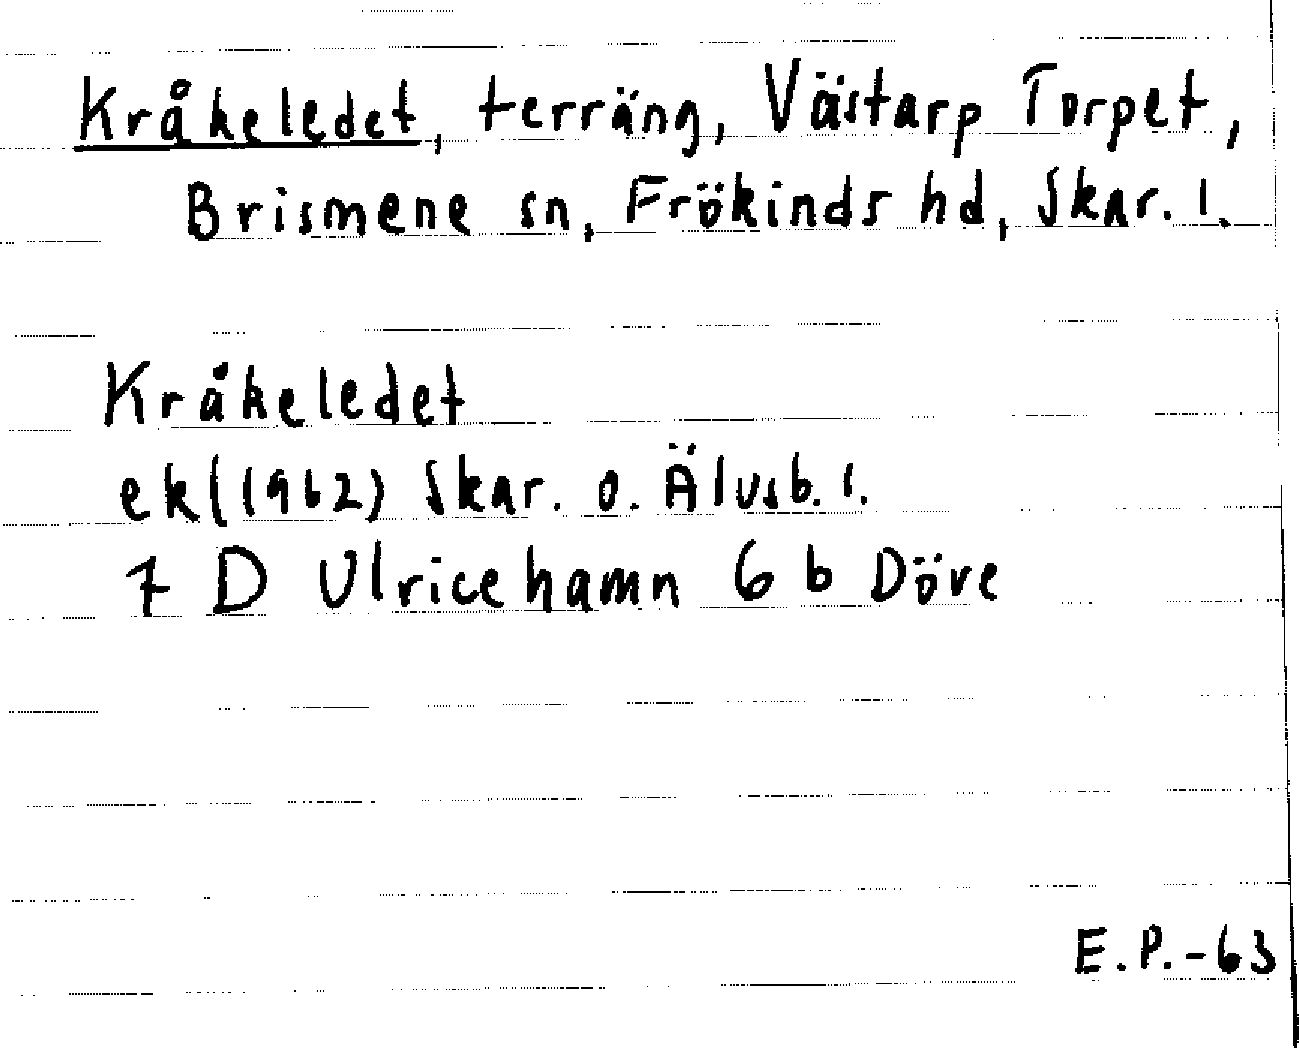 Kråkeledet, terräng, Västarp Torpet,
Brismene sn, Frökinds hd, Skar. l.
Kråkeledet
ek(1962) Skar. o. Älvsb. l.
7 D Ulricehamn 6 b Döve
E.P.-63